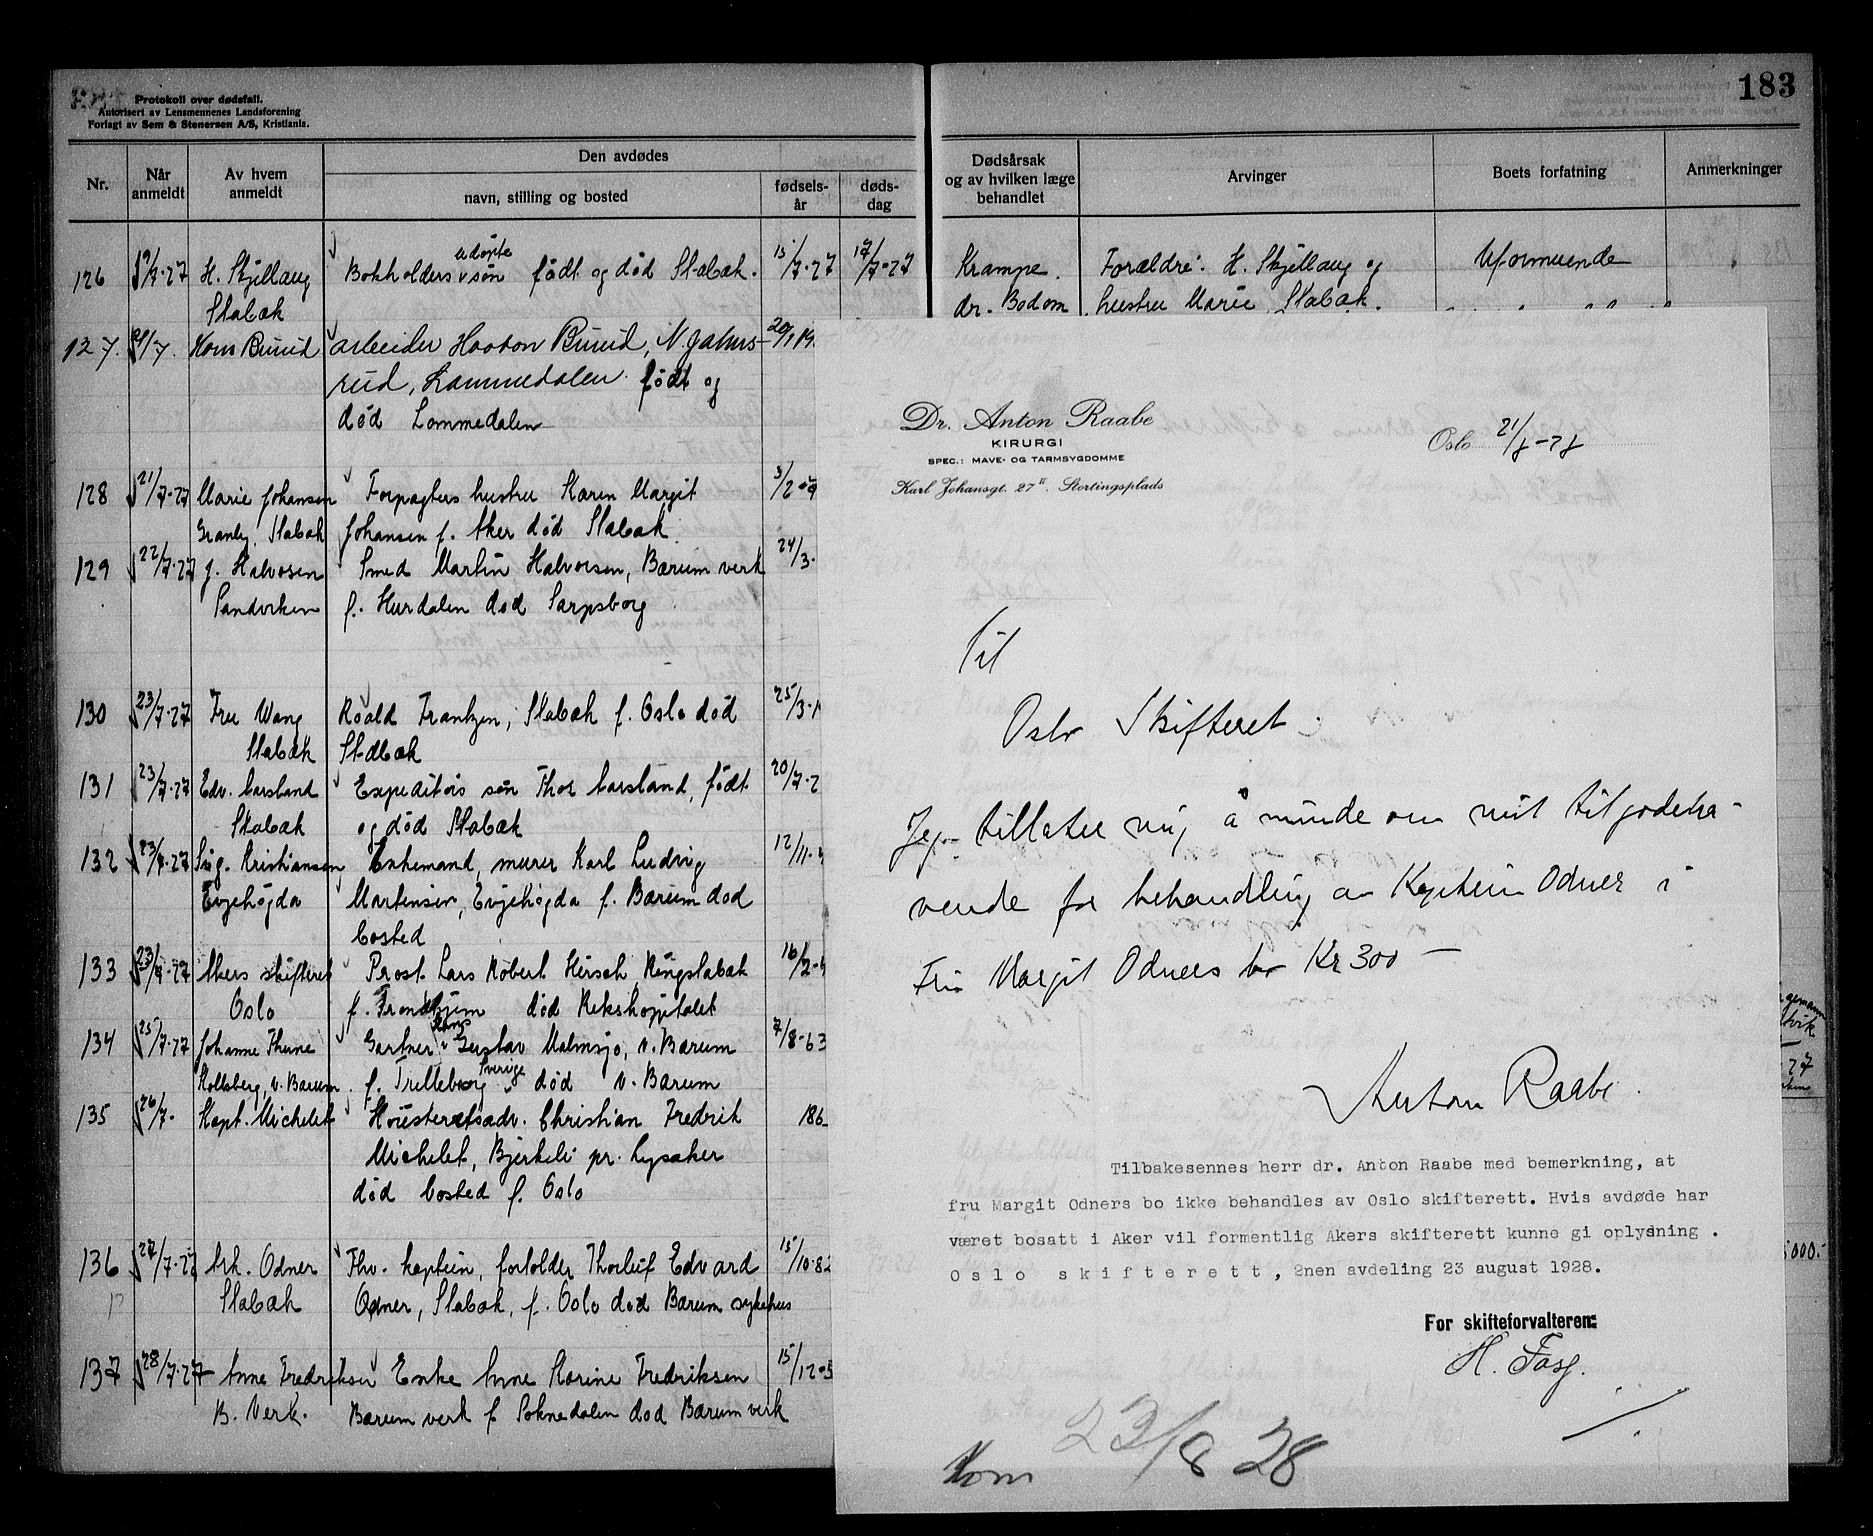 Protokoll over dødsfall.
Autorisert av Lensmennenes Landsforening
Forlagt av Sem & Stenersen A/S, Kristiania.
183
Nr.
Når anmeldt
Av hvem anmeldt
Den avdødes
navn, stilling og bosted
fødsels-år
døds-dag
Dødsårsak og av hvilken læge behandlet
Arvinger
Boets forfatning
Anmerkninger
126 19/7-27 H. Skjellaug Bokholders udöpte søn født og død Stabæk. 15/7-27 17/7-27 Krampe. Forældre: H. Skjellaug og Uformuende
Stabæk dr. Bodom hustru Marie, Stabæk.
127. 21/7. Hans Burud arbeider Haakon Burud, N. Jahns- 20/1 19
rud, Lommedalen født og
død Lommedalen
128 21/7-27 Marie Johansen Forpagters hustru Karen Margit 3/2
Granly, Stabæk Johansen f. Aker død Stabæk
129 22/7-27 J. Halvorsen Smed Martin Halvorsen, Bærum verk 24/3.
Sandviken f. Hurdalen død Sarpsborg
130 23/7-27 Fru Wang Roald Frantzen, Stabæk f. Oslo død 25/3.
Stabæk Stabæk
131 23/7-27 Edv. Carstand Expeditørs søn Thor Carstand, født 20/7-2
Stabæk og død Stabæk
132 23/7-27 Sig. Kristiansen Enkemand, murer Karl Ludvig 12/11.
Evjehøgda Martensen, Evjehøgda f. Bærum død
bosted
133 23/7-27 Akers skifteret Prost Lars Robert Hirsch, Ringstabæk 16/2
Oslo f. Trondhjem død Rikshospitalet
134 25/7-27 Johanne Thune Gartner Hans Gustav Malmsjø, v. Bærum 7/8-63
Kolsberg, v. Bærum. f. Trelleborg Sverige død v. Bærum
135 26/7- Kapt. Michelet Høiesteretsadv. Christian Fredrik 186
Michelet, Bjerkeli pr. Lysaker
død bosted f. Oslo
136 27/7-27 Ark. Odner Fhv. kaptein, forlolder Thorleif Edvard 15/10-8
Stabæk Odner, Stabæk, f. Oslo død Bærum sykehus
137 28/7-27 Anne Fredriksen Enke Anne Karine Fredriksen 15/12
B. Verk. Bærum verk f. Soknedalen død Bærum verk
Dr. Anton Raabe
KIRURGI
SPEC.: MAVE- OG TARMSYGDOMME
Karl Johansgt. 27 II. Stortingsplads
Oslo 21/8-28
Til
Oslo Skifteret.
Jeg tillater mig å minde om mit tilgodeha-
vende for behandling av Kaptein Odner i
Fru Margit Odners bo Kr 300 —
Anton Raabe.
Tilbakesennes herr dr. Anton Raabe med bemerkning, at
fru Margit Odners bo ikke behandles av Oslo skifterett. Hvis avdøde har
været bosatt i Aker vil formentlig Akers skifterett kunne gi oplysning .
O s l o s k i f t e r e t t , 2nen avdeling 23 august 1928.
For skifteforvalteren:
23/8 28
5000.-